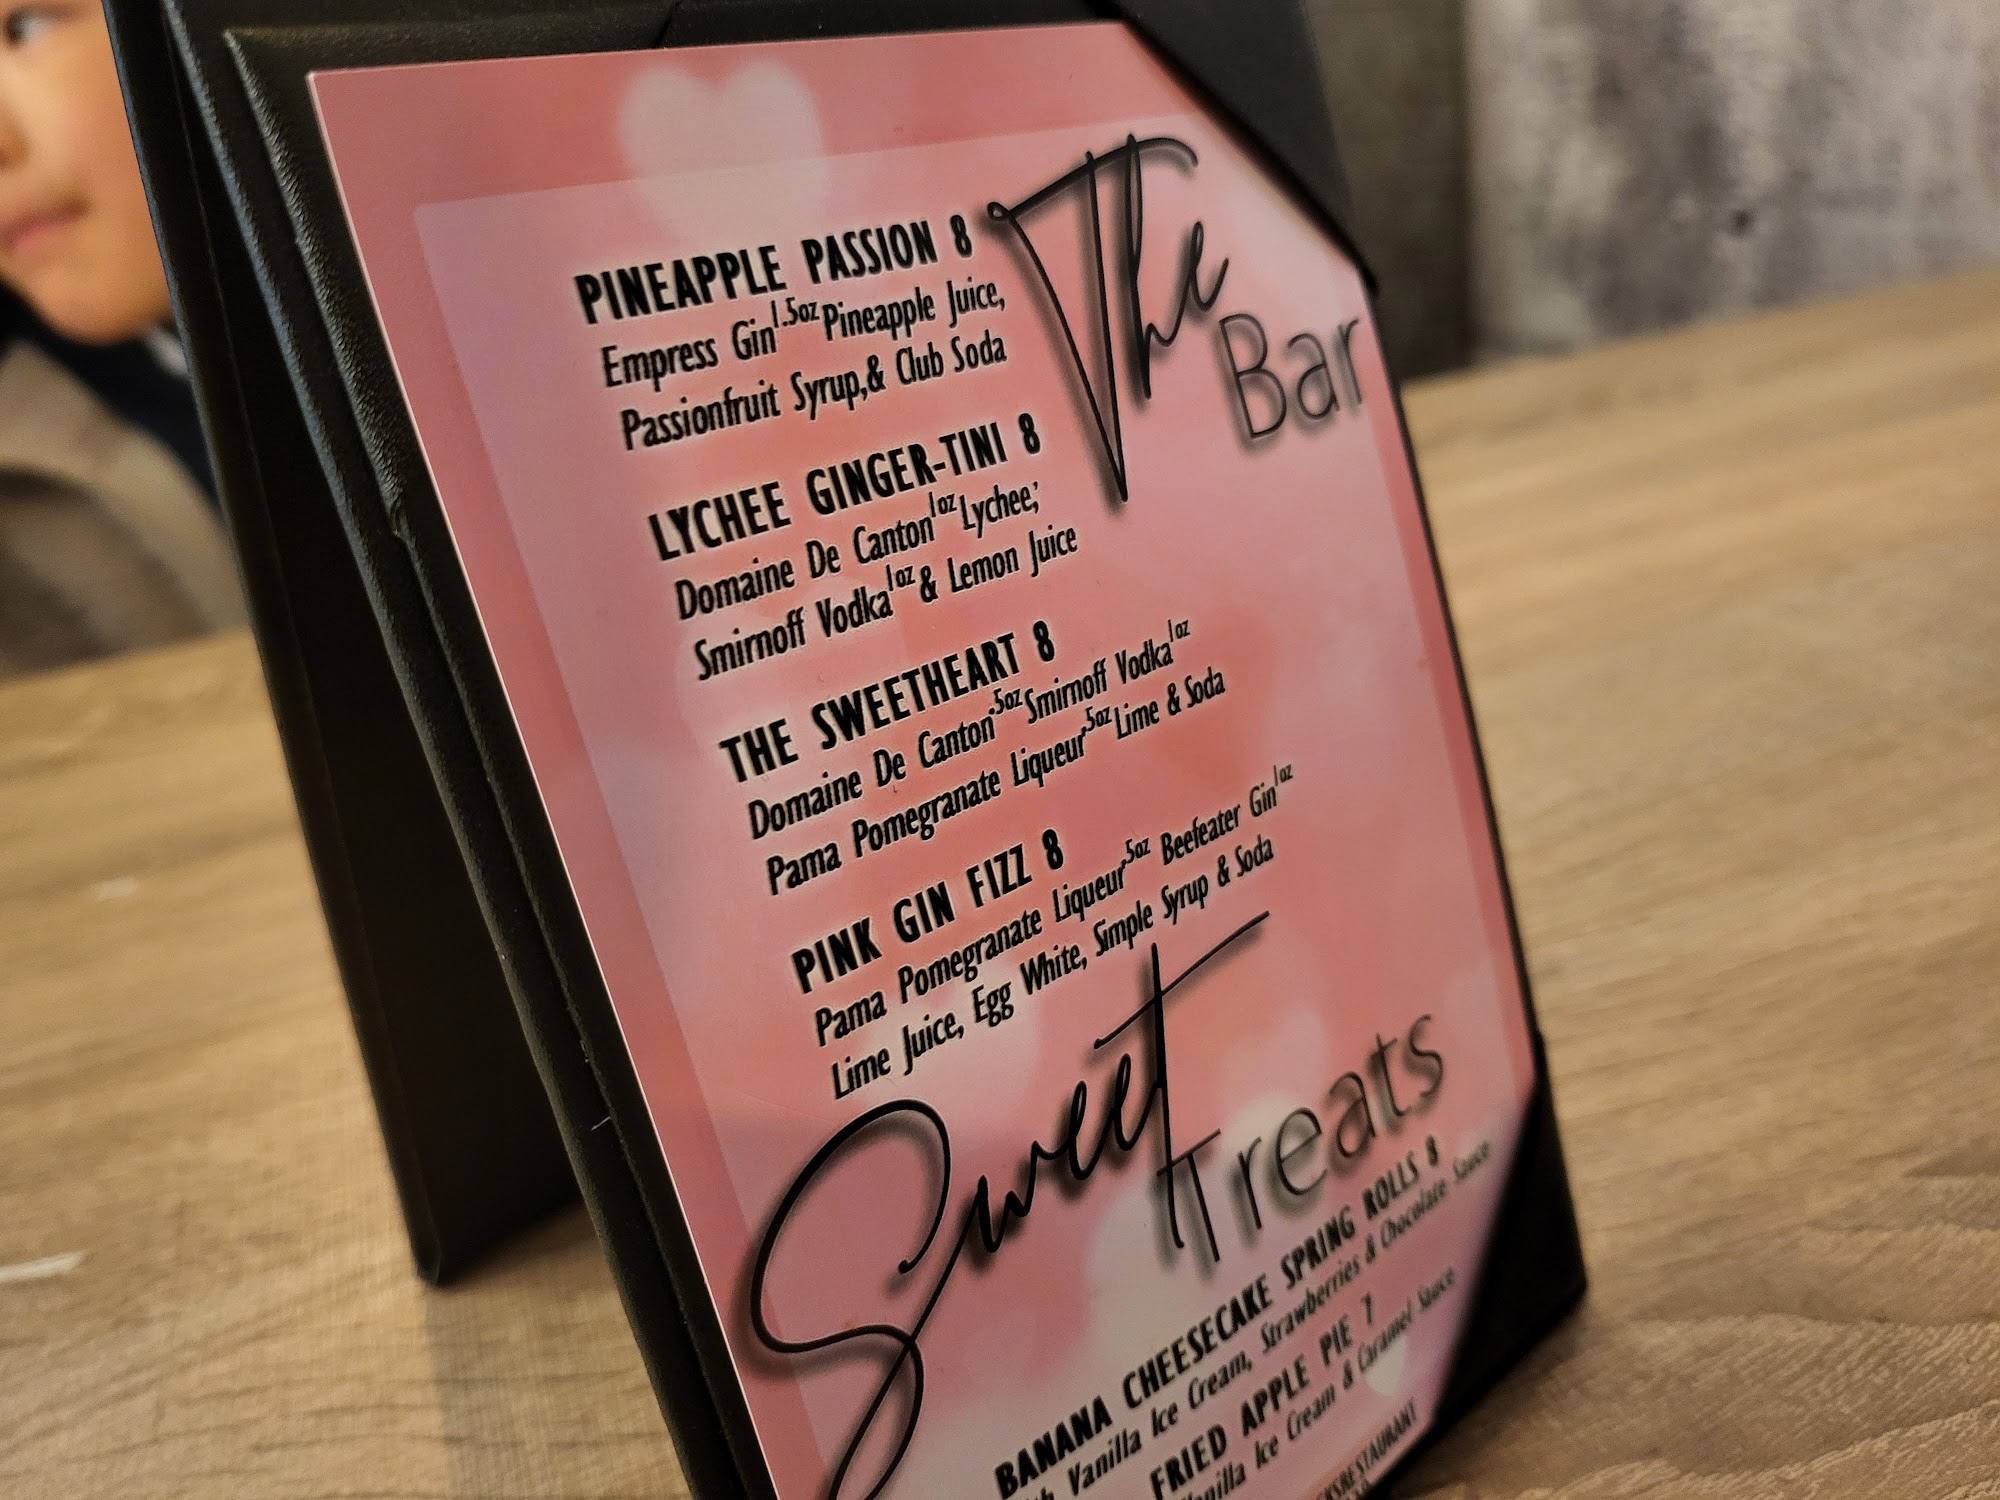 The
Bar
PINEAPPLE PASSION 8
Empress Gin 1.5oz Pineapple Juice,
Passionfruit Syrup,& Club Soda
LYCHEE GINGER-TINI 8
Domaine De Canton 1oz Lychee,
Smirnoff Vodka 1oz & Lemon Juice
THE SWEETHEART 8
Domaine De Canton .5oz Smirnoff Vodka 1oz
Pama Pomegranate Liqueur .5oz Lime & Soda
PINK GIN FIZZ 8
Pama Pomegranate Liqueur .5oz Beefeater Gin 1oz
Lime Juice, Egg White, Simple Syrup & Soda
Sweet
Treats
BANANA CHEESECAKE SPRING ROLLS 8
Vanilla Ice Cream, Strawberries & Chocolate Sauce
FRIED APPLE PIE 7
Vanilla Ice Cream & Caramel Sauce